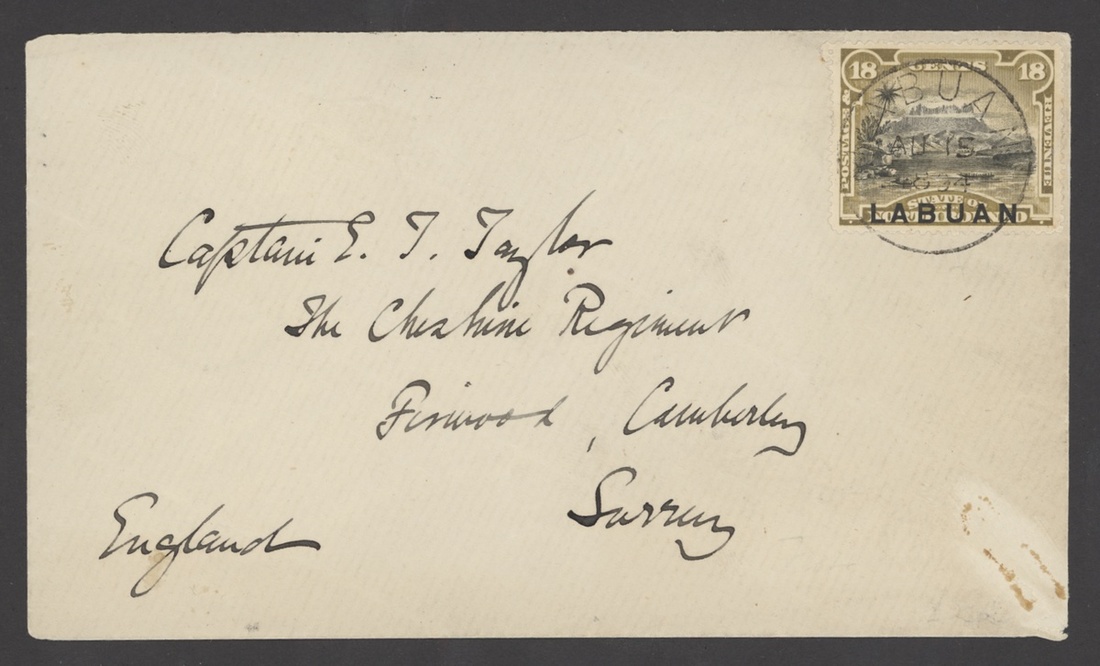 18 CENTS 18
POSTAGE &
REVENUE
LABUAN
AU 15
STATE OF
LABUAN
Captain E. T. Taylor
The Cheshire Regiment
Firwood, Camberley
Surrey
England